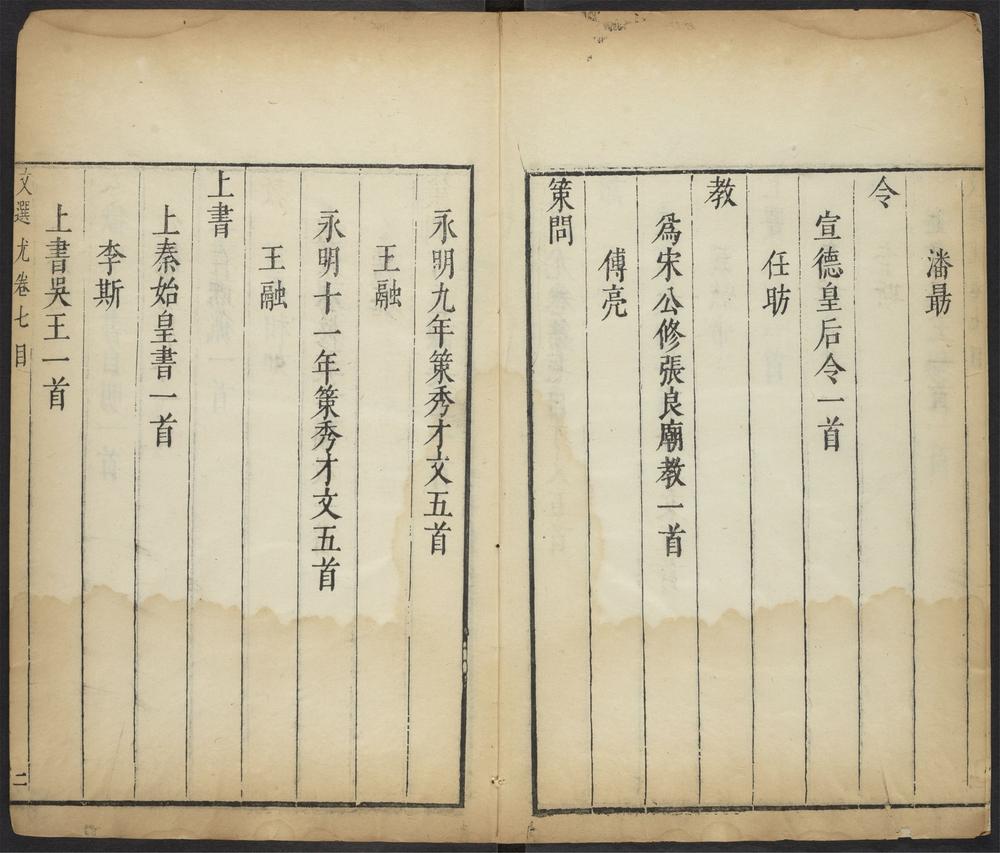 潘勗
令
宣德皇后令一首
任昉
教
爲宋公修張良廟教一首
傅亮
策問
永明九年策秀才文五首
王融
永明十一年策秀才文五首
王融
上書
上秦始皇書一首
李斯
上書吳王一首
文選尤卷七目
二